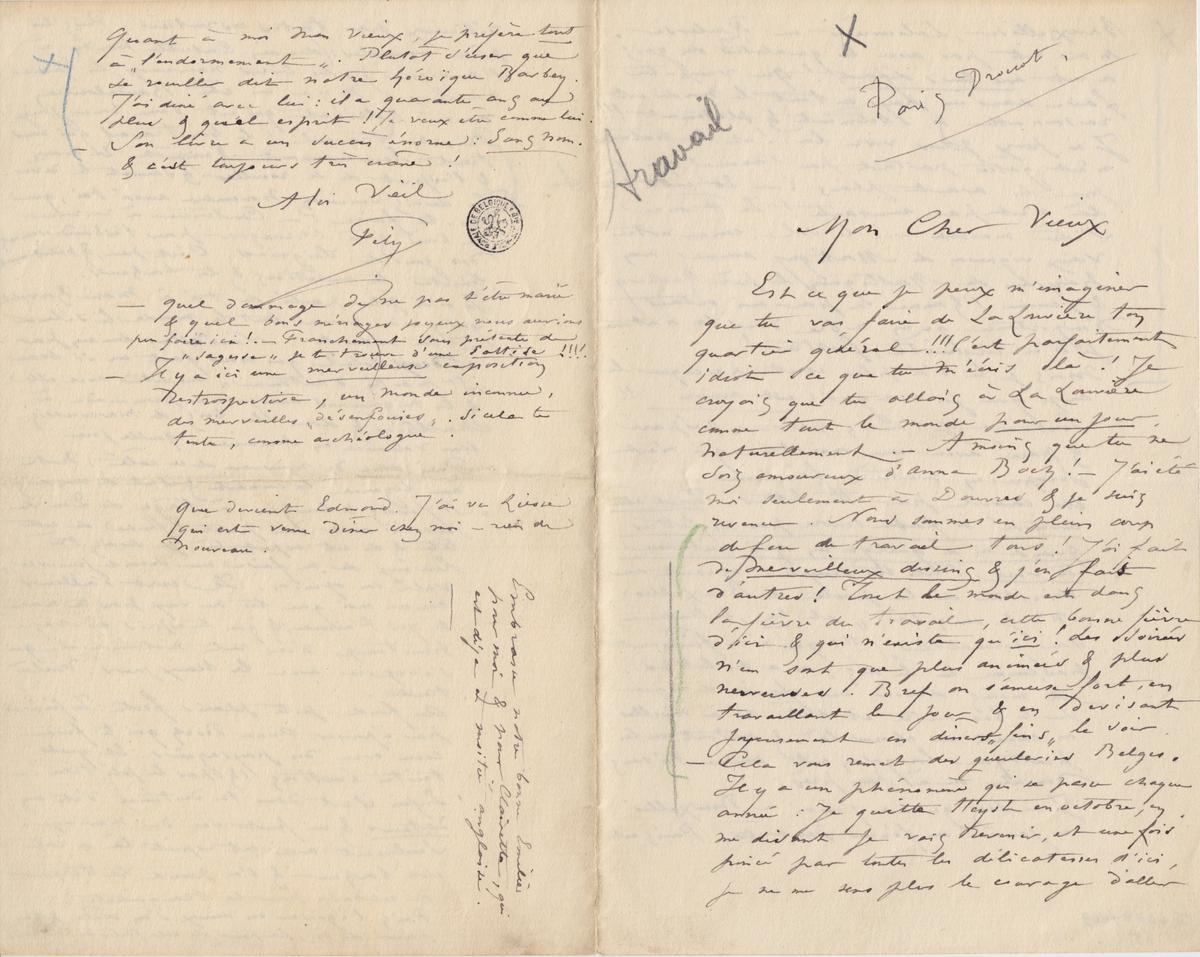 Quant à moi mon vieux, je préfère tout
à "l'endormement". Plutot s'user que
se rouiller dit notre héroïque Barbey.
J'ai diné avec lui : il a quarante ans au
plus & quel esprit ! Je veux être comme lui.
– Son livre a un succès énorme : Sans nom.
& c'est toujours très crâne !
A toi Vieil
Fély
BELGIQUE
— quel dommage de ne pas s'être marié
& quel bons ménages joyeux nous aurions
pu faire ici ! – Franchement sous prétexte de
"sagesse" je te trouve d'une sottise !!!!
– Il y a ici une merveilleuse exposition
retrospective, un monde inconnu,
des merveilles "désenfouies". Si cela te
tente, comme archéologue.
Que devient Edmond. J'ai vu Liesse
qui est venu diner chez moi – rien de
nouveau.
Embrasse notre bonne Emilie
pour moi & nour Clairette, qui
est déjà à moitié anglaise.
X
Paris Drouot,
travail
Mon Cher Vieux
Est ce que je peux m'imaginer
que tu vas faire de La Louvière ton
quartier général !!! C'est parfaitement
idiot ce que tu m'écris là ! Je
croyais que tu allais à La Louvière
comme tout le monde pour un jour,
naturellement. – A moins que tu ne
sois amoureux d'Anna Boch ! – J'ai été
moi seulement à Douvres & je suis
revenu. Nous sommes en plein coup
de feu de travail tous ! J'ai fait
de merveilleux dessins & j'en fais
d'autres ! Tout le monde est dans
la fièvre du travail, cette bonne fièvre
d'ici & qui n'existe qu'ici ! Les soirées
n'en sont que plus animées & plus
nerveuses. Bref on s'amuse fort, en
travaillant le jour & en devisant
joyeusement en diners "fins" le soir.
– Cela vous remet des gueuleries Belges.
Il y a un phénomène qui se passe chaque
année : Je quitte Heyst en octobre, en
me disant je vais revenir, et une fois
pincé par toutes les délicatesses d'ici,
je ne me sens plus le courage d'aller